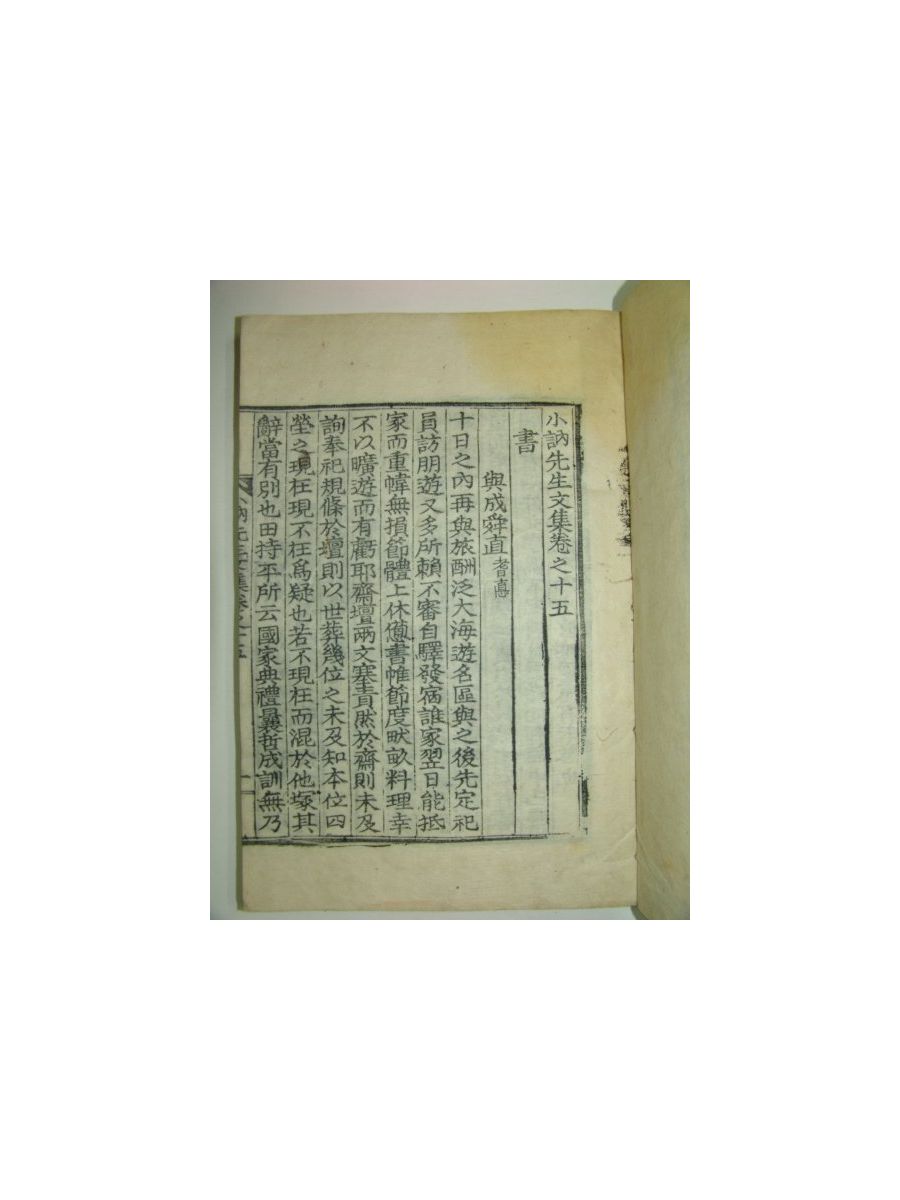 小訥先生文集卷之十五
書
與成舜直 耆悳
十日之內再與旅酬泛大海遊名區與之後先定祀
員訪朋遊又多所賴不審自驛發宿誰家翌日能抵
家而重幃無損節體上休僊書帷節度畎畝料理幸
不以曠遊而有虧耶齋壇兩文塞責然於齋則未及
詢奉祀規條於壇則以世葬幾位之未及知本位四
塋之現在現不在爲疑也若不現在而混於他塚其
辭當有別也田持平所云國家典禮曩哲成訓無乃